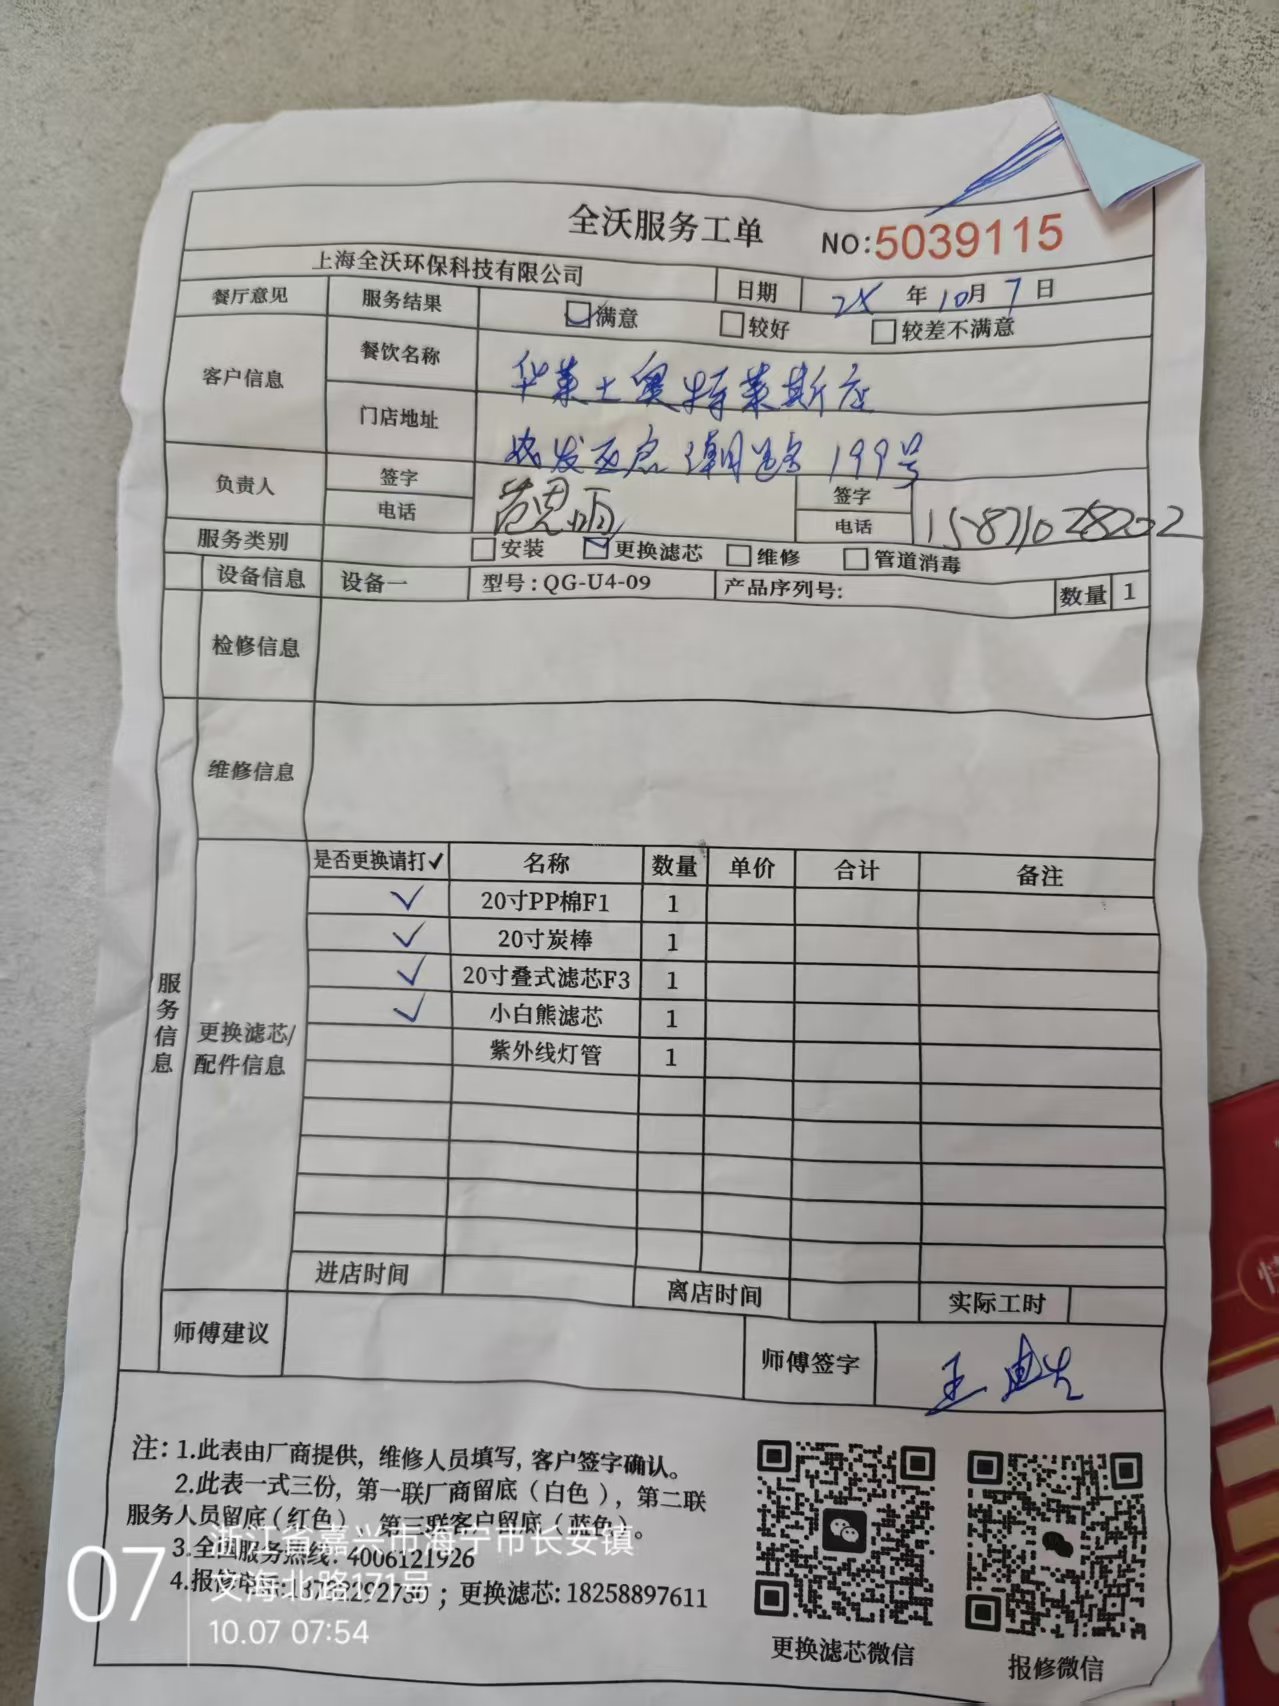 全沃服务工单 NO:5039115
上海全沃环保科技有限公司 日期 25年10月7日
餐厅意见 服务结果 满意 较好 较差不满意
客户信息 餐饮名称 华莱士奥特莱斯店
门店地址 199号
负责人 签字 签字
电话 电话
服务类别 安装 更换滤芯 维修 管道消毒
设备信息 设备一 型号:QG-U4-09 产品序列号: 数量 1
检修信息
维修信息
服务信息
更换滤芯/配件信息
是否更换请打✓ 名称 数量 单价 合计 备注
✓ 20寸PP棉F1 1
✓ 20寸炭棒 1
✓ 20寸叠式滤芯F3 1
✓ 小白熊滤芯 1
紫外线灯管 1
进店时间 离店时间 实际工时
师傅建议 师傅签字
注:1.此表由厂商提供,维修人员填写,客户签字确认。
2.此表一式三份,第一联厂商留底(白色),第二联
服务人员留底(红色),第三联客户留底(蓝色)。
3.全国服务热线:4006121926
4.报修电话: ;更换滤芯:18258897611
更换滤芯微信 报修微信
07
浙江省嘉兴市海宁市长安镇
文海北路171号
10.07 07:54